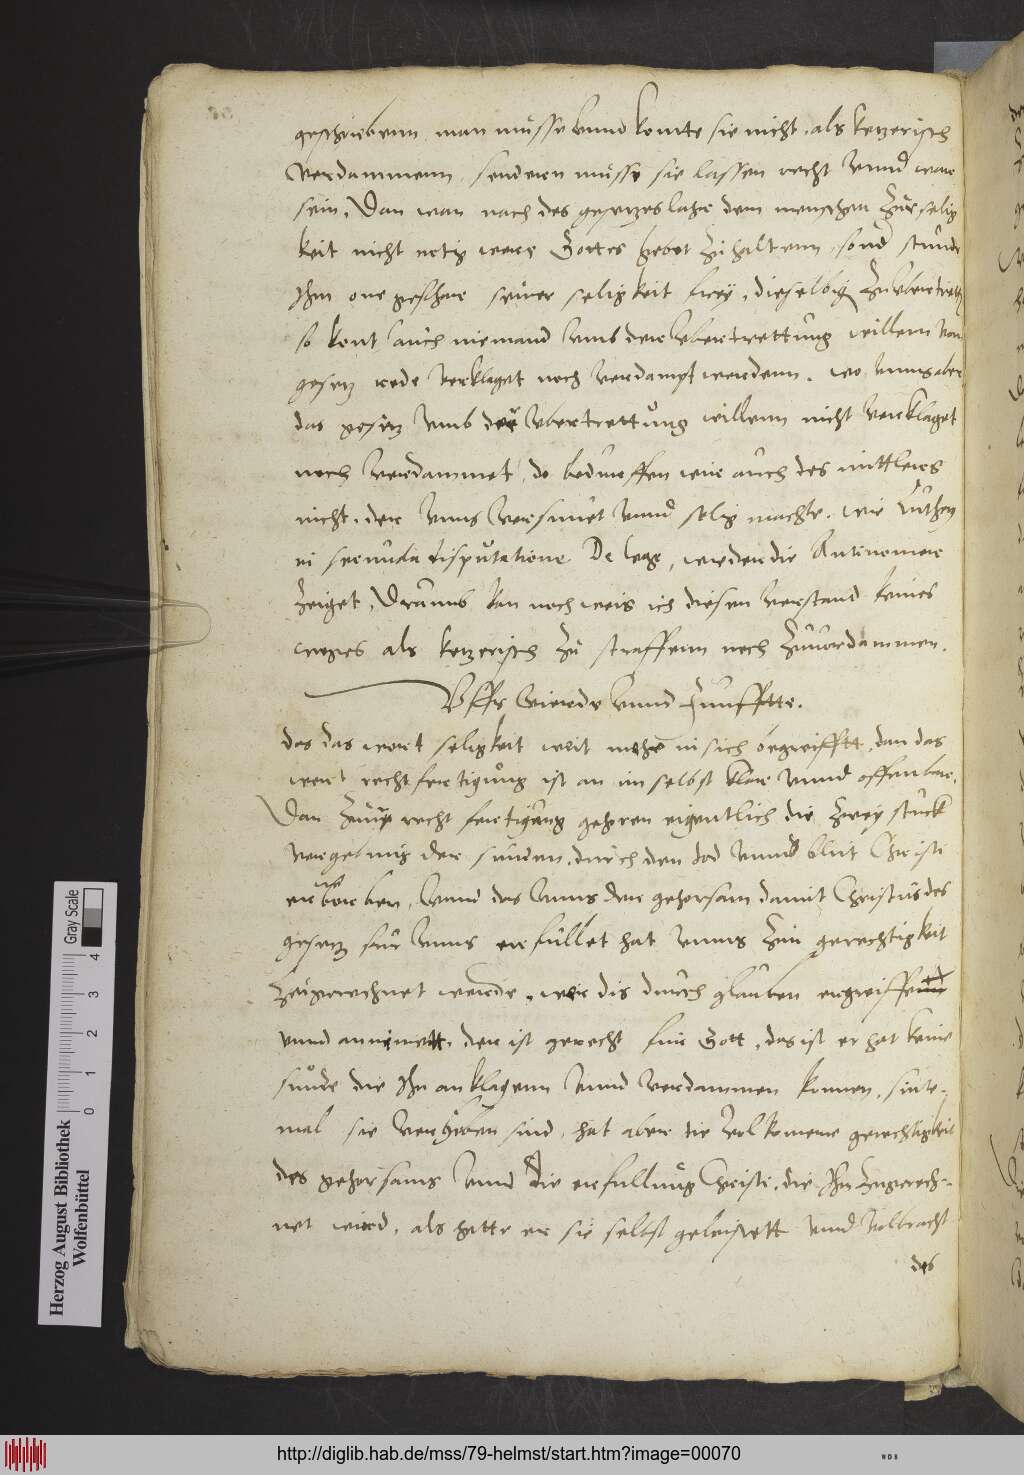 geschriebenn man müsse vnnd konte sie nicht als ketzerisch
verdammenn, sonderen müsse sie lassen recht vnnd war
sein. Dan wan nach des gesetzes lahre dem menschen zür selig
keit nicht notig were Gottes gebot zü haltenn, sond stunde
Ihm one gefhare seiner seligkeit frey, dieselbig zu vbertrett
so kont auch niemand vmb der vbertrettung willenn von
gesetz rede verklaget noch verdampt werdenn. wo vnns aber
das gesetz vmb der vbertrettung willenn nicht verklaget
noch verdammet, do bedurffen wir auch des mittlers
nicht, der vnns versunet vnnd selig machte. wie Luther
in secunda disputatione De lege, widder die Antinomer
zeiget, Drumb kan noch weis ich diesen verstand keines
weges als ketzerisch zü straffenn noch zuuordammen.
Vffs vierde vnnd funfftte.
das das wort seligkeit weit mehr in sich begreifftt, dan das
wort rechtfertigung ist an im selbst klar vnnd offenbar.
Dan zuur recht fertigung gehoren eigentlich die zwey stuck
vergebnis der sünden, durch den tod vnnd blut Christi
erworben, vnnd das vnns der gehorsam damit Christus des
gesetz für vnns erfüllet hat vnns zur gerechtigkeit
zugerechnet werde, wer dis durch glauben ergreiffe
vnnd annimett, der ist gerecht fur Gott, das ist er hat keine
sunde die Ihn anklagenn vnnd verdammen konnen, sinte-
mal sie vergeben sind, hat aber die volkomene gerechtigkeit
des gehorsams vnnd die erfullung Christi, die Ihm zugerech-
net wird, als hette er sie selbst geleistett vnnd volbracht
des
Gray Scale
0 1 2 3 4
Herzog August Bibliothek
Wolfenbüttel
http://diglib.hab.de/mss/79-helmst/start.htm?image=00070